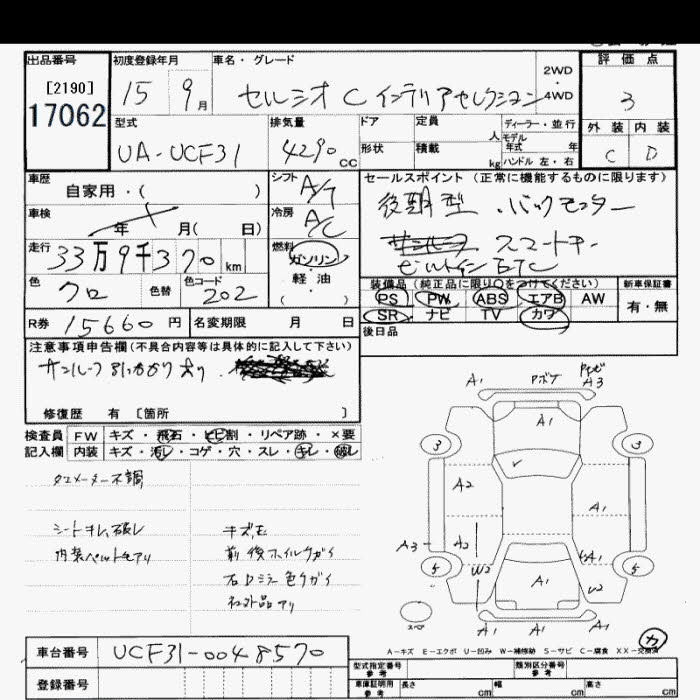 出品番号 初度登録年月 車名・グレード 評価点
[2190] 17062 15 9月 セルシオ C インテリアセレクション 2WD ・ 4WD 3
型式 排気量 ドア 定員 人 ディーラー・並行 外装 内装
UA-UCF31 4290 CC 形状 積載 kg モデル年式 年 ハンドル 左・右 C D
車歴 自家用・( ) シフト A/T セールスポイント (正常に機能するものに限ります)
車検 年 月( 日) 冷房 A/C 後期型 バックモニター
走行 33万9千370 km 燃料 ガソリン・軽油・( ) サンルーフ スマートキー
ビルトインETC
色 クロ 色替 色コード 202 装備品 (純正品に限り○をつけてください) 新車保証書
PS PW ABS エアB AW 有・無
SR ナビ TV カワ
R券 15660円 名変期限 月 日 後日品
注意事項申告欄 (不具合内容等は具体的に記入して下さい)
サンルーフ引っかかりあり
修復歴 有 [箇所 ]
検査員 FW キズ・飛石・ヒビ割・リペア跡・×要
記入欄 内装 キズ・汚レ・コゲ・穴・スレ・キレ・破レ
メーター不調
シートキレ、破レ キズ、E
内装ペット毛アリ 前後ホイルチガイ
右Dミラー色チガイ
社外品アリ
A1 Pボテ A3
A1
3 3
A2 A1
A3 A2 A1
5 W2 A1 U2 5
スペア A1 A1 A1
カ
A-キズ E-エクボ U-凹み W-補修跡 S-サビ C-腐食 XX-交換済
車台番号 UCF31-0048570 型式指定番号 参考 類別区分番号 参考
登録番号 車庫証明用 参考 長さ cm 幅 cm 高さ cm